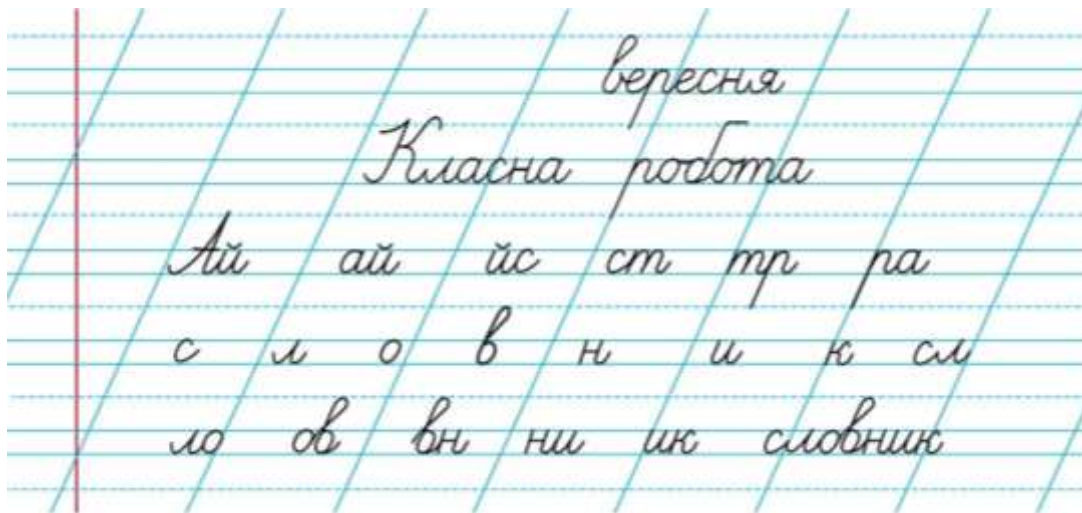 вересня
Класна робота
Ай ай йс ст тр ра
с л о в н и к сл
ло ов вн ни ик словник